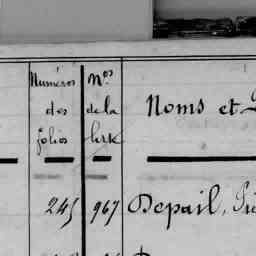 Numéros des folios
Nos de la liste
Noms et
245
967
Depail,